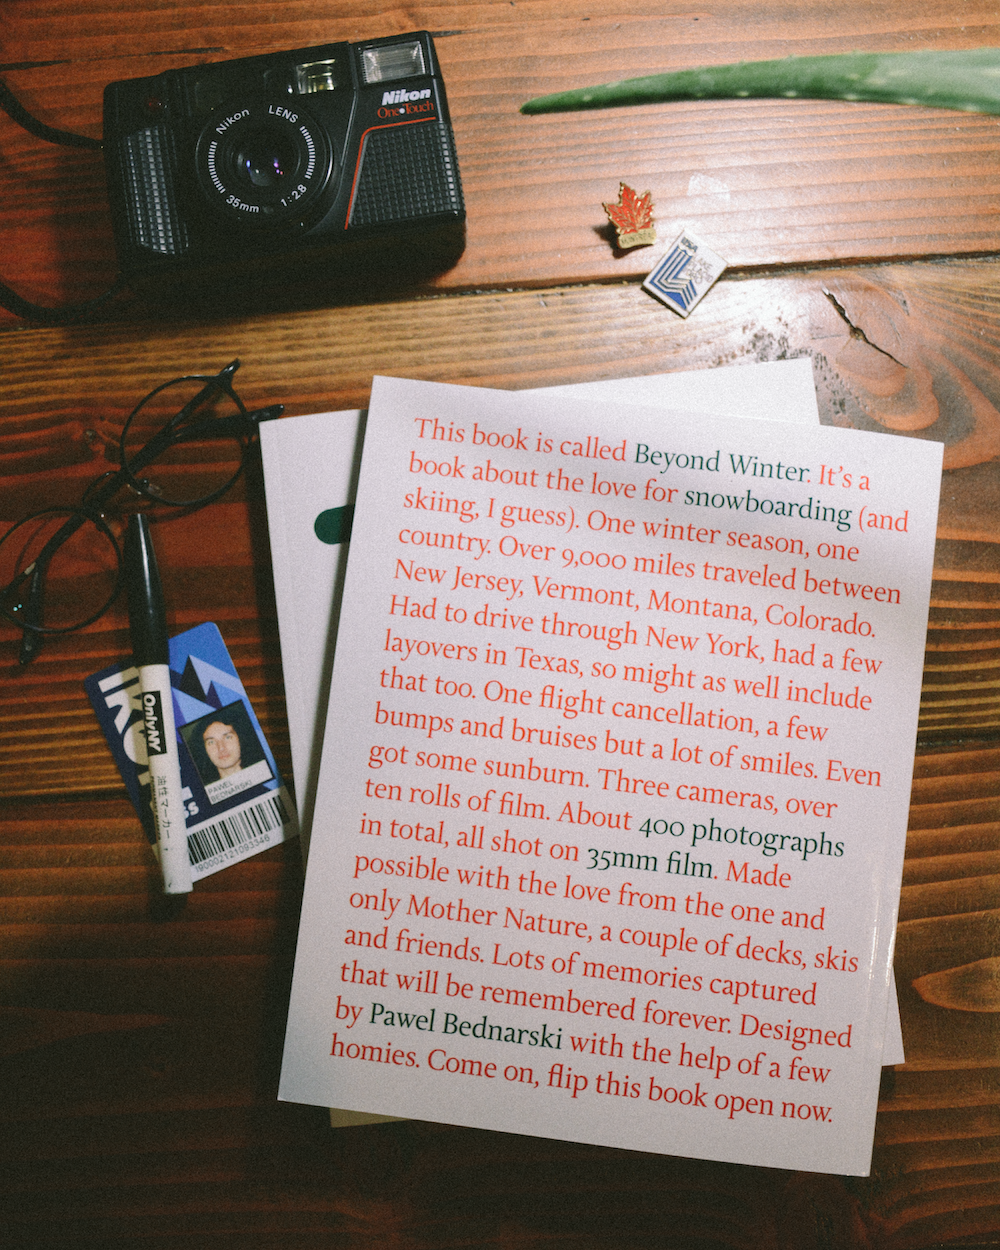 Nikon
One•Touch
Nikon LENS
35mm 1:2.8
This book is called Beyond Winter. It's a
book about the love for snowboarding (and
skiing, I guess). One winter season, one
country. Over 9,000 miles traveled between
New Jersey, Vermont, Montana, Colorado.
Had to drive through New York, had a few
layovers in Texas, so might as well include
that too. One flight cancellation, a few
bumps and bruises but a lot of smiles. Even
got some sunburn. Three cameras, over
ten rolls of film. About 400 photographs
in total, all shot on 35mm film. Made
possible with the love from the one and
only Mother Nature, a couple of decks, skis
and friends. Lots of memories captured
that will be remembered forever. Designed
by Pawel Bednarski with the help of a few
homies. Come on, flip this book open now.
OnlyNY
油性マーカー
PAWEL
BEDNARSKI
190002121093346